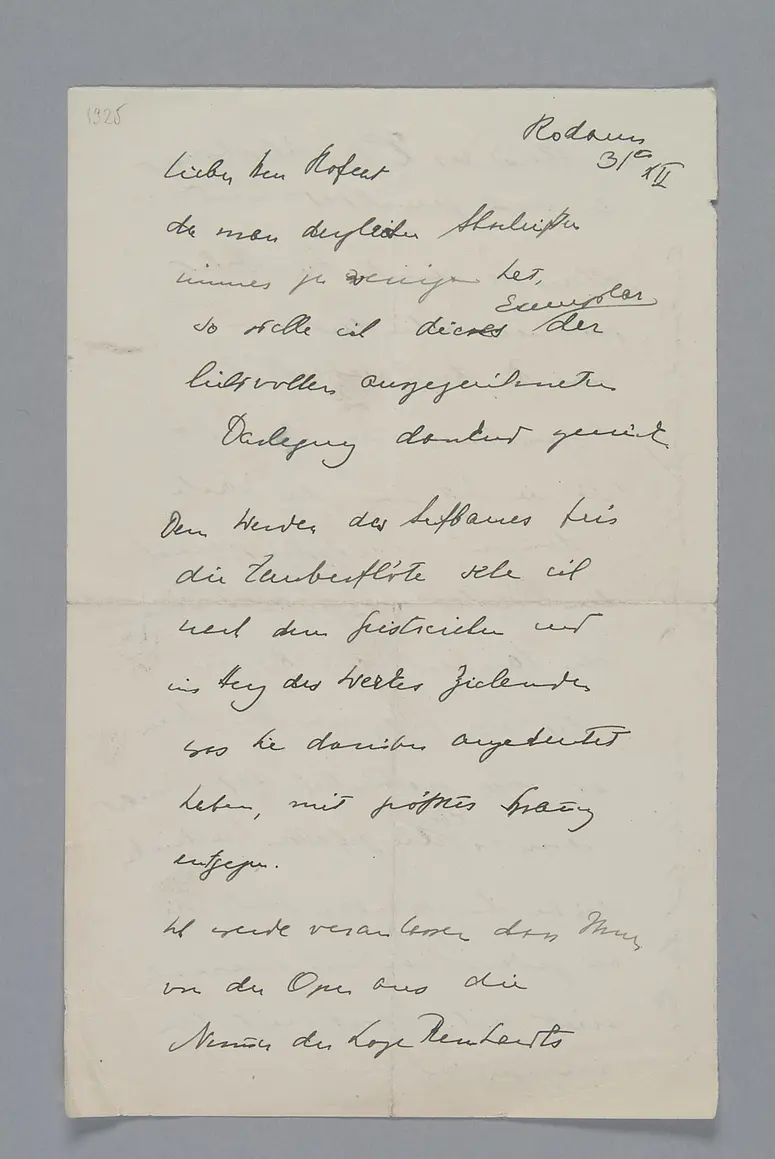 1925
Rodaun
31ten XII
Lieber Herr Hofrat
da man dergleichen Abschriften
immer zu wenige hat,
Exemplar
so stelle ich dieses der
liebevollen ausgezeichneten
Darlegung dankend zurück.
Dem Werden des Aufbaues für
die Zauberflöte sehe ich
nach dem Geistreichen und
ins Herz des Werkes Zielenden
was Sie darüber angedeutet
haben, mit größter Spannung
entgegen.
Ich werde veranlassen dass Ihnen
von der Oper aus die
Nummer der Loge Reinhardts